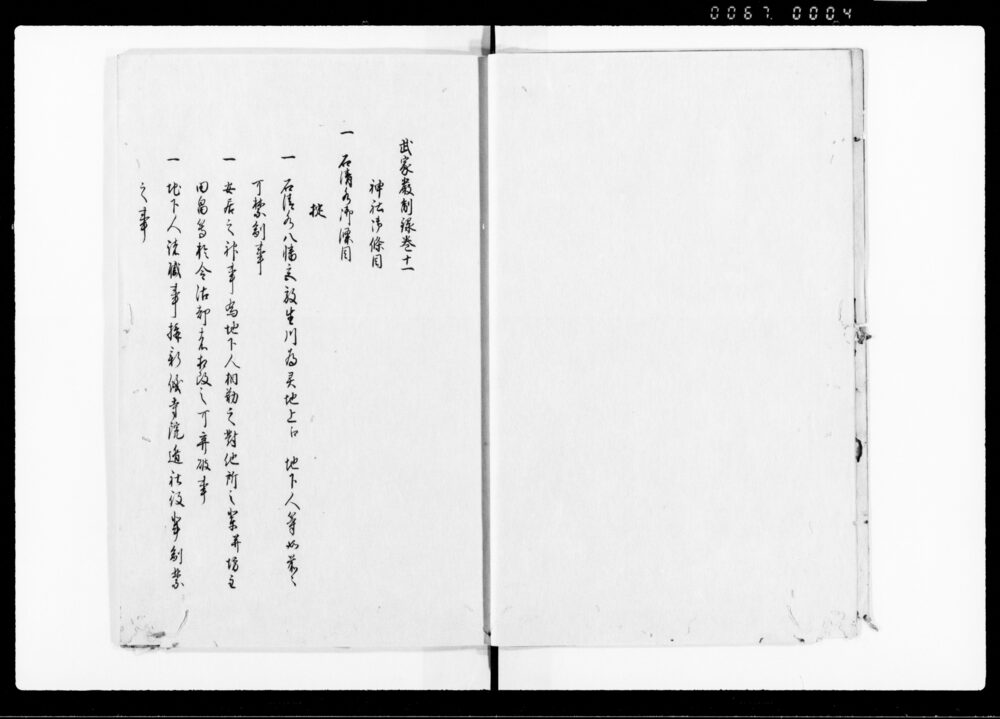 0067 0004
武家嚴制録巻十一
神社御條目
一 石清水御條目
掟
一 石清水八幡宮放生川為灵地上ハ 地下人等如前々
可禁制事
一 安居之神事為地下人相勤之對他所之輩并坊主
田畠等於令沽却者相改之可弃破事
一 地下人諸職事採新儀寺院造社役等制禁
之事